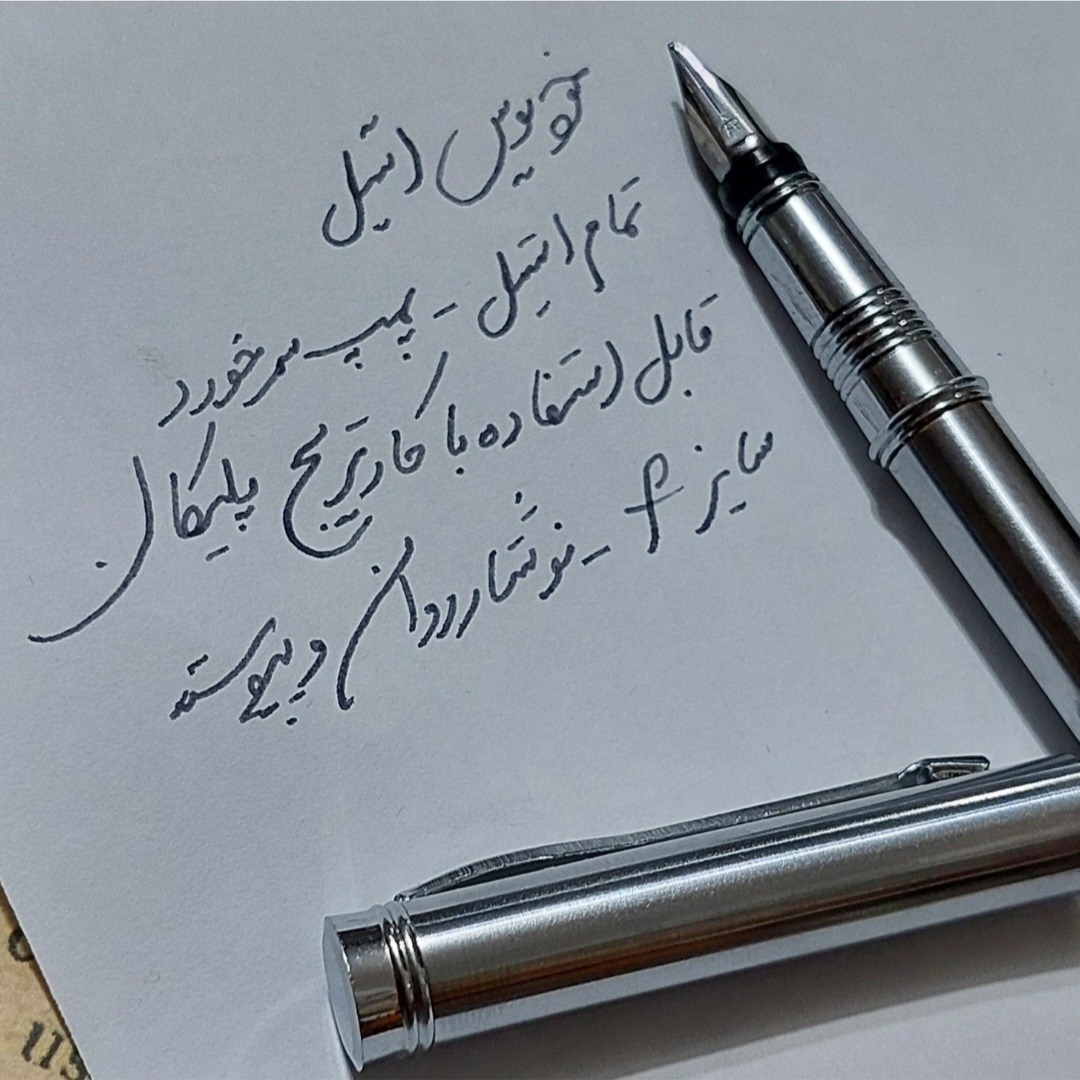 خودنویس استیل
تمام استیل - پمپ سرخورد
قابل استفاده با کارتریج پلیکان
سایز F - نوشتار روان و پیوسته
115